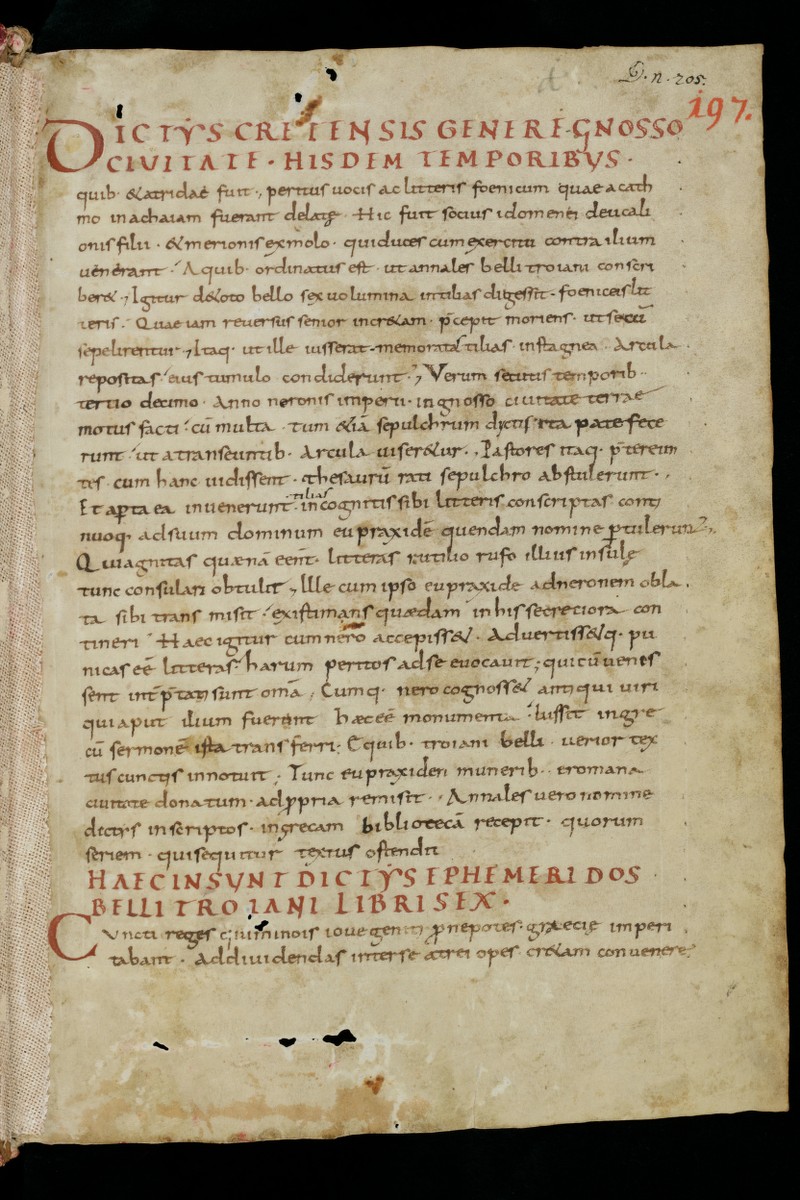 D. n. 205.
197.
DICTYS CRETENSIS GENERE GNOSSO
CIVITATE · HISDEM TEMPORIBVS ·
quib· &atridae fuit ·, peritus uocis ac litteris foenicum quae a cath
mo in achaiam fuerant delatę · Hic fuit socius idomenei deucali
onis filii · & merionis ex molo · qui duces cum exercitu contra ilium
uenerant · A quib· ordinatus est · ut annales belli troiani conscri
ber& ; Igitur de toto bello sex uolumina in tilias digessit · foeniceis lit
teris · Quae iam reuersus senior in cr&am · p̄cepit moriens · ut secū
sepelirentur ; Itaq· ut ille iusserat · memoratas tilias · in stagnea · Arcula
repositas eius tumulo condiderunt ; Verum secutis temporib·
tertio decimo · Anno neronis imperii · in gnosso ciuitate terrae
motus facti · cū multa · tum &iā sepulchrum dictis ita pate fece
runt · ut a transeuntib· Arcula uiser&ur · Pastores itaq· p̄tereun
tes · cum hanc uidissent · thesaurū rati sepulchro abstulerunt ·
Et apta ea inuenerunt tilias incognitis sibi litteris conscriptas conti
nuoq· ad suum dominum eupraxidē quendam nomine ptulerunt
Qui agnitas quae nā eēnt · litteras rutilio rufo illius insulę
tunc consulari obtulit ; Ille cum ipso eupraxide ad neronem obla
ta sibi trans misit · existimans quaedam in his secretiora con
tineri · Haec igitur cum nero accepiss& · Aduertiss&q· pu
nicas eē litteras · harum peritos ad se euocauit ; qui cū uenis
sent intp̄tati sunt omā ; Cumq· nero cognoss& antiqui uiri
qui aput ilium fuerant haec eē monumenta · Iussit in gre
cū sermonē ista transferri ; E quib· troiani belli uerior tex
tus cunctis innotuit ; Tunc eupraxiden munerib· & romana
ciuitate donatum · ad ppria remisit · Annales uero nomine
dictys inscriptos · in grecam bibliotecā recepit · quorum
seriem · qui sequitur textus ostendit
HAEC INSVNT DICTYS EPHEMERIDOS
BELLI TROIANI LIBRI SEX ·
Cuncti reges qui minois ioue geniti pnepotes · graecię imperi
tabant · Ad diuidendas inter se atrei opes cr&am conuenere